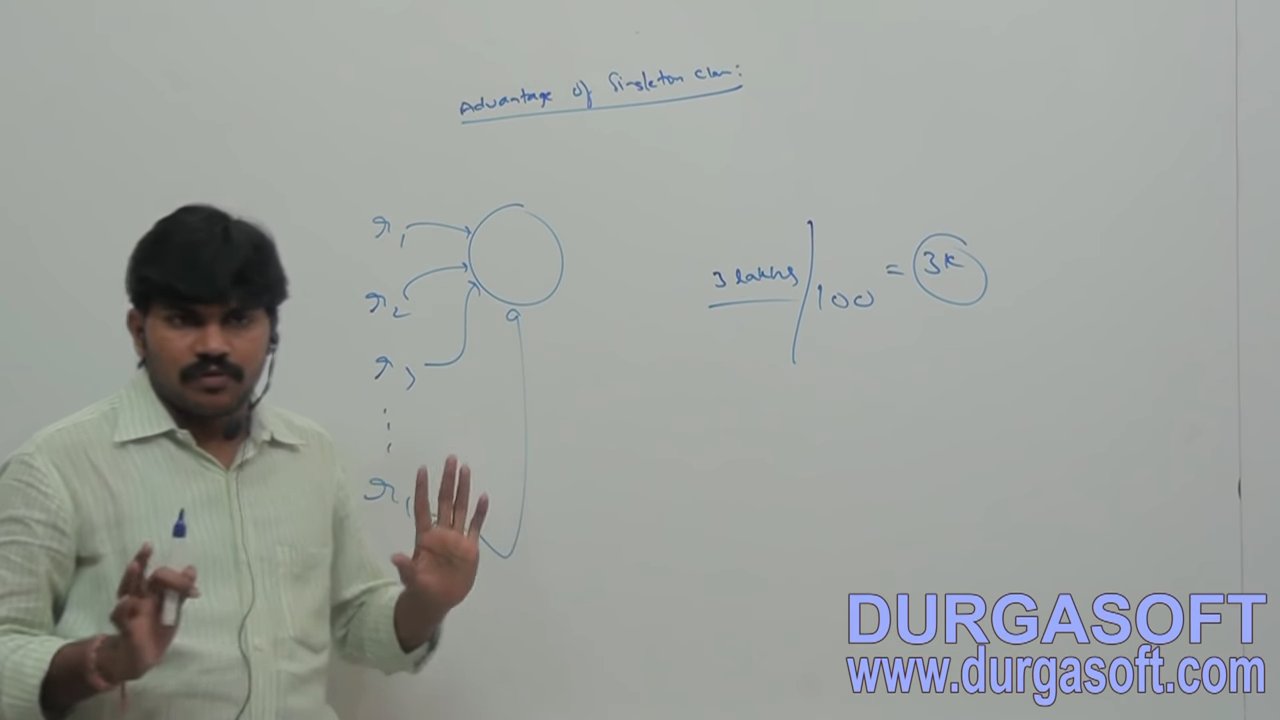 Advantage of Singleton Class:
r1
r2
r3
3 lakhs / 100 = 3K
DURGASOFT
www.durgasoft.com